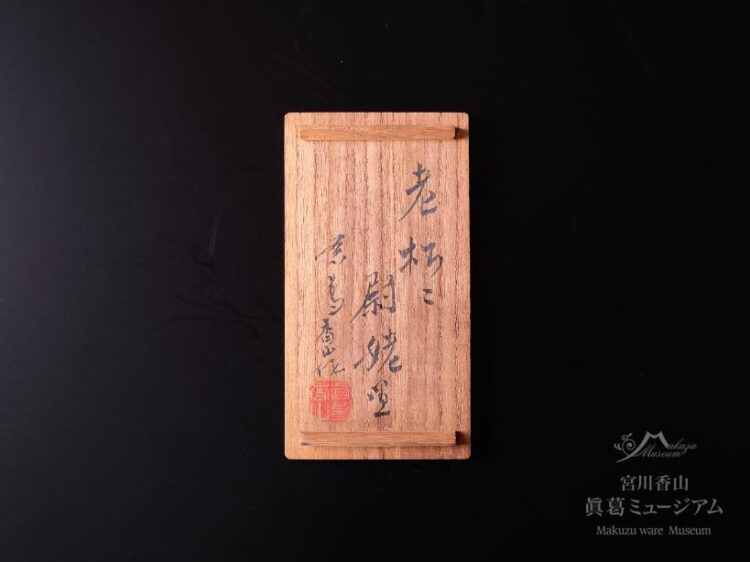 老松ニ
尉姥置
真葛香山作
Makuzu
Museum
宮川香山
眞葛ミュージアム
Makuzu ware Museum